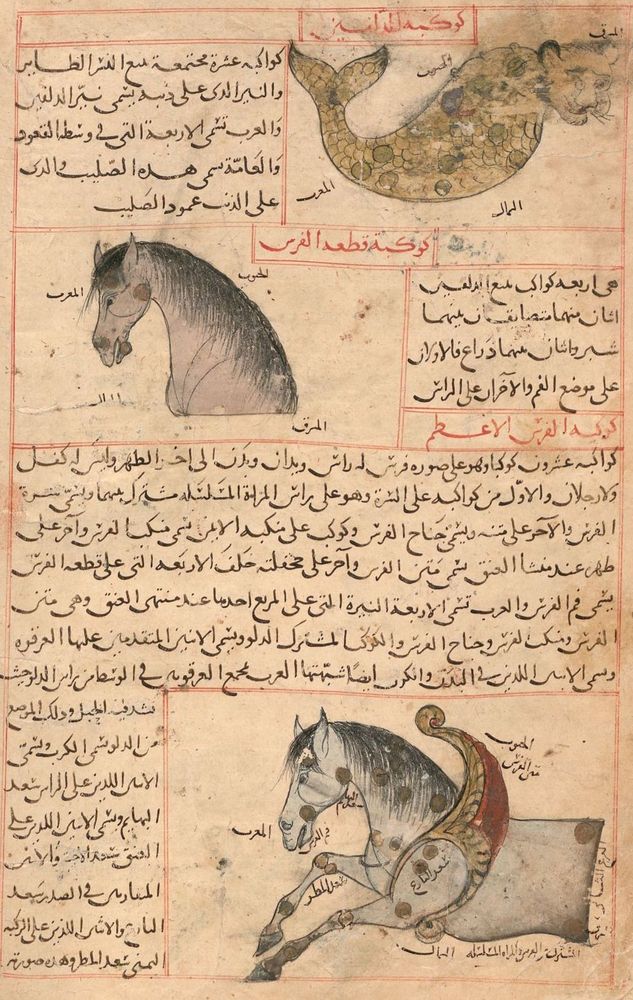 كوكبة الدلفين
المشرق
كواكبه عشرة مجتمعة تتبع النسر الطاير
والنير الدى على دنبه يسمى دنب الدلفين
والعرب تسمى الاربعة التى فى وسطه القعود
والعامة تسمى هده الصليب والدى
على الدنب عمود الصليب
الجنوب
المغرب
الشمال
كوكبة قطعه الفرس
الجنوب
المغرب
المشرق
هى اربعه كواكب تتبع الدلفين
اثنان منهما متضايقان بينهما
شبر واثنان بينهما دراع فالاولان
على موضع الفم والاخران على الراس
كوكبه الفرس الاعظم
كواكبه عشرون كوكبا وهو على صوره فرس له راس ويدان وبدن الى اخر الظهر وليس له كفل
ولا رجلان والاول من كواكبه على السرة وهو على راس المراة المسلسله مشترك بينهما ويسمى سرة
الفرس والاخر على متنه ويسمى جناح الفرس وكوكب على منكبه الايمن يسمى منكب الفرس واخر على
ظهره عند منشا العنق يسمى متن الفرس واخر على جحفلته خلف الاربعه التى على قطعه الفرس
يسمى فم الفرس والعرب تسمى الاربعة النيرة التى على المربع احدها عند منتهى العنق وهى متن
الفرس ومنكب الفرس وجناح الفرس والكوكب المشترك الدلو ويسمى الاثنين المتقدمين عليها العرقوه
ويسمى الاثنين اللدين فى البدن والكرب ايضا شبهتها العرب بمجمع العرقوتين فى الوسط من راس الدلو حيث
يشد فيه الحبل ودلك الموضع
من الدلو يسمى الكرب ويسمى
الاثنين اللدين على الراس سعد
البهايم ويسمى الاثنين اللدين على
العنق سعد الهمام والاثنين
المتقاربين فى الصدر سعد
البارع والاثنين اللدين على الركبه
اليمنى سعد المطر وهده صورته
الجنوب
متن الفرس
المغرب
فم الفرس
سعد البارع
سعد المطر
الشمال